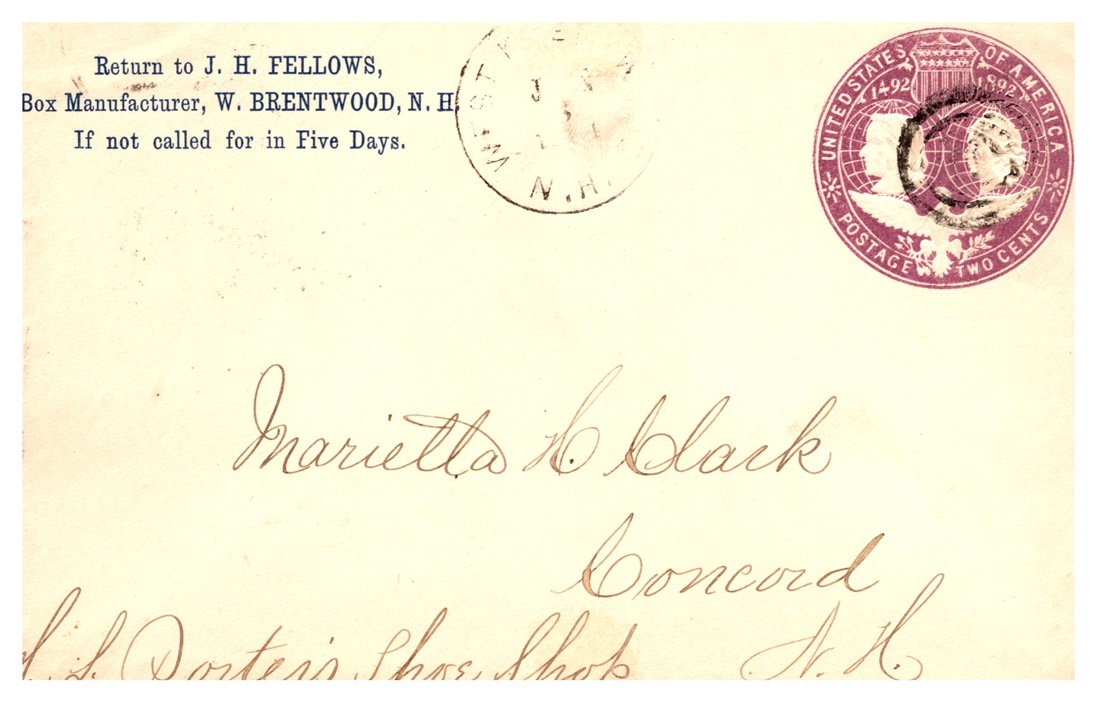 Return to J. H. FELLOWS,
Box Manufacturer, W. BRENTWOOD, N. H.
If not called for in Five Days.
N.H.
UNITED STATES OF AMERICA
1492 1892
POSTAGE TWO CENTS
Marietta H. Clark
Concord
N. H.
S. Porter's Shoe Shop